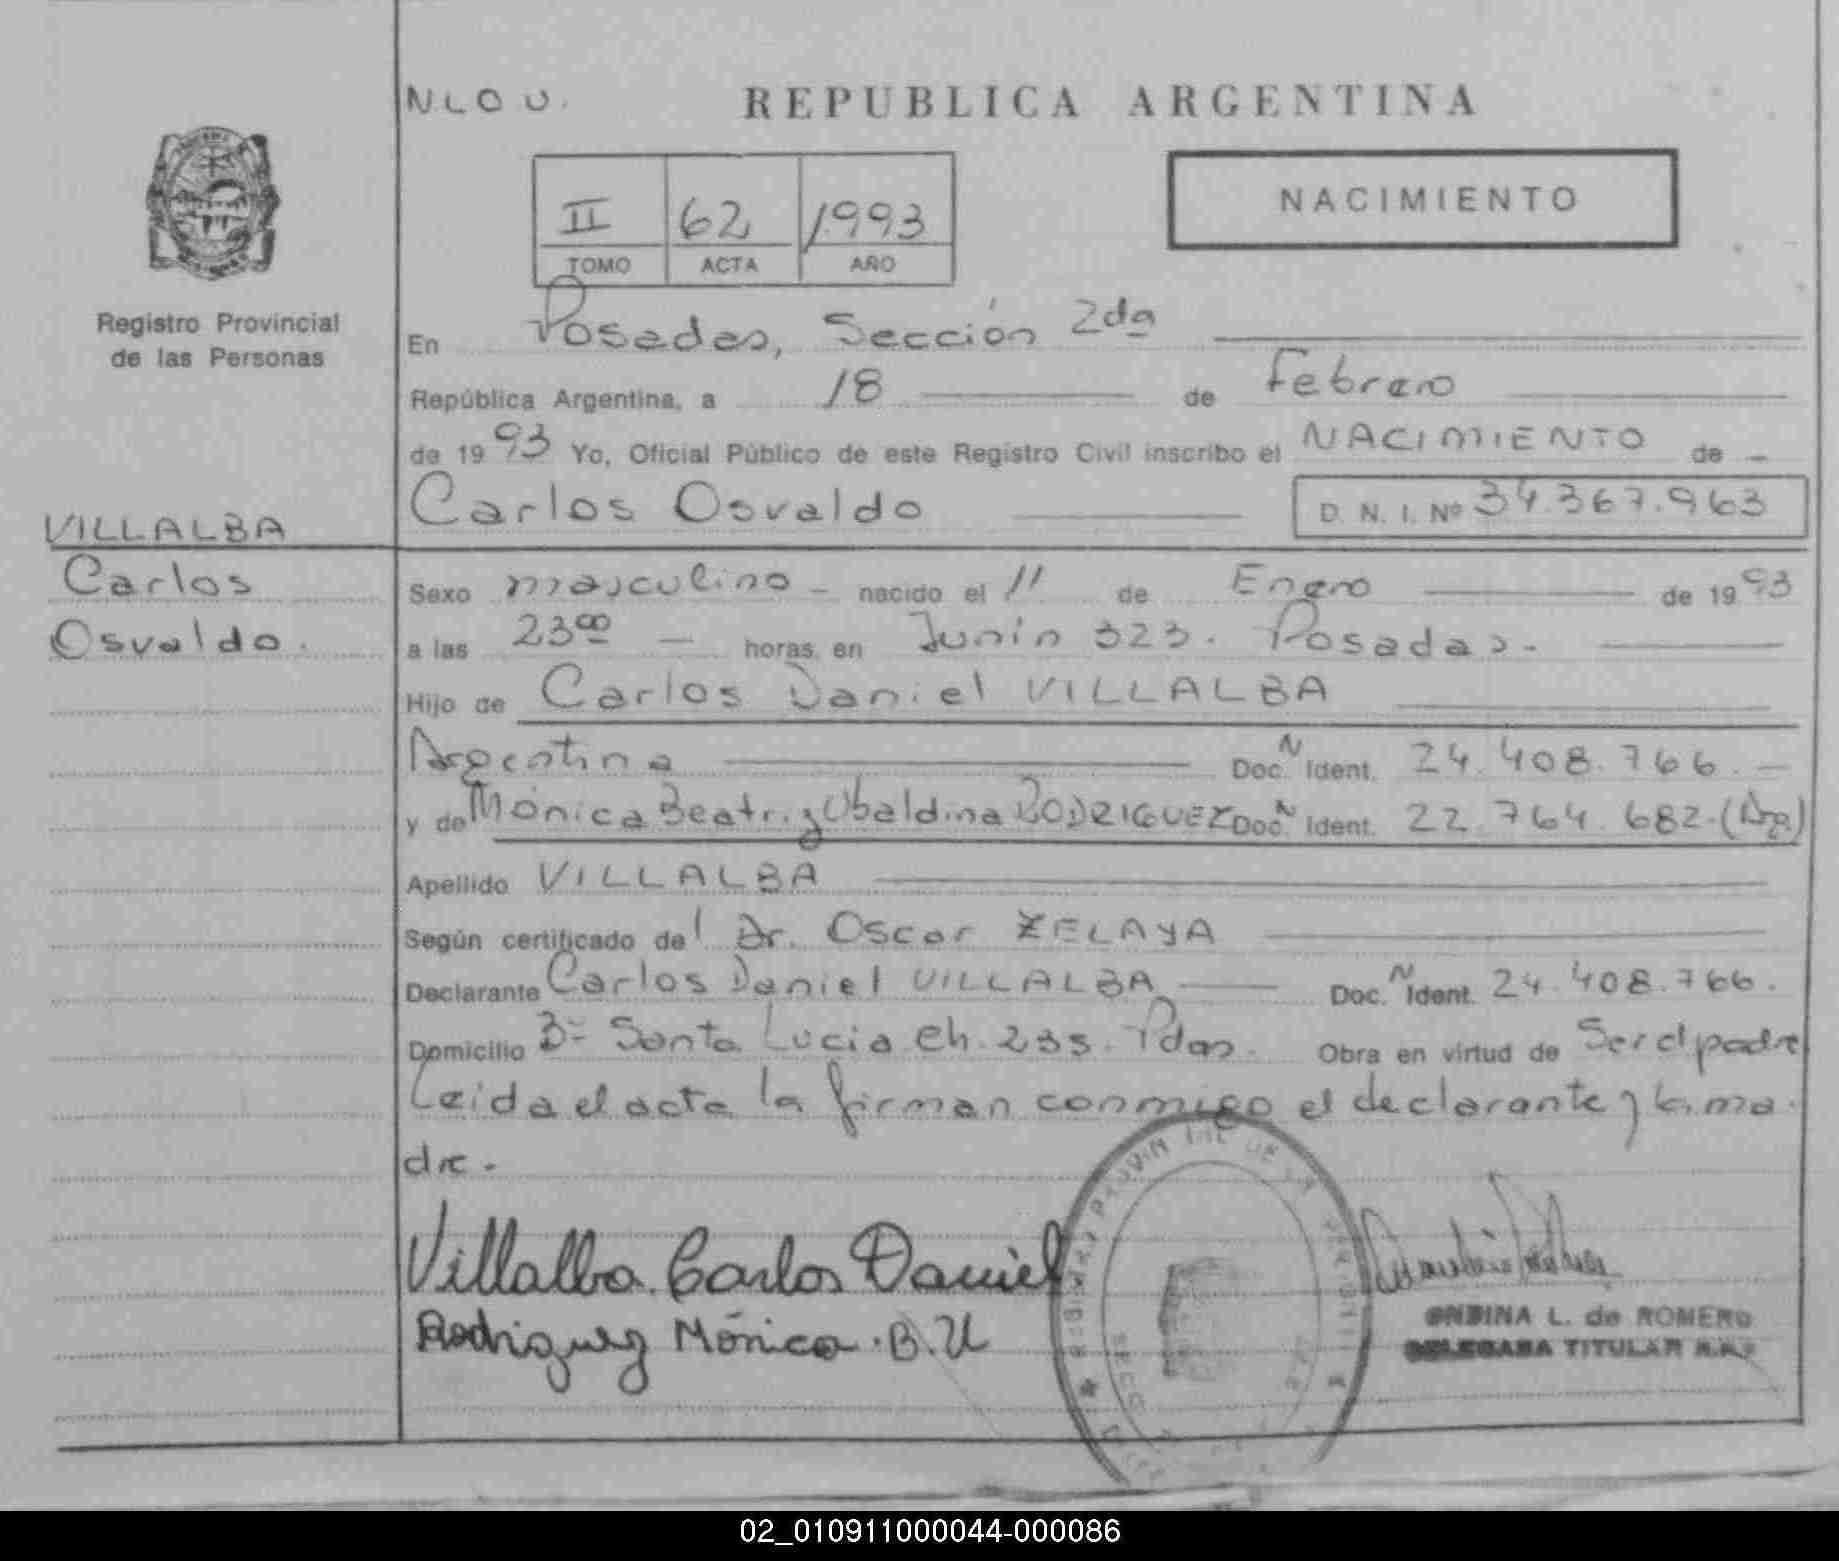 NLOU.
REPUBLICA ARGENTINA
II 62 1993
TOMO ACTA AÑO
NACIMIENTO
Registro Provincial
de las Personas
En Posadas, Sección 2da
República Argentina, a 18 de Febrero
de 1993 Yo, Oficial Público de este Registro Civil inscribo el NACIMIENTO de
Carlos Osvaldo D. N. I. Nº 34.367.963
VILLALBA
Carlos
Osvaldo.
Sexo masculino nacido el 11 de Enero de 1993
a las 23 00 horas en Junín 323. Posadas.
Hijo de Carlos Daniel VILLALBA
Argentina Doc. N Ident. 24.408.766.
y de Mónica Beatriz Ubaldina RODRIGUEZ Doc. N Ident. 22.764.682. (Arg.)
Apellido VILLALBA
Según certificado del Dr. Oscar ZELAYA
Declarante Carlos Daniel VILLALBA Doc. N Ident. 24.408.766.
Domicilio Bº Santa Lucia Ch. 235. Pdas. Obra en virtud de Ser el padre
Leida el acta la firman conmigo el declarante y la ma
dre.
Villalba Carlos Daniel
Rodriguez Mónica. B. U
ONDINA L. de ROMERO
DELEGADA TITULAR
02_010911000044-000086